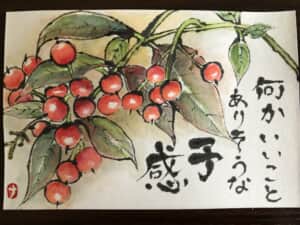 何かいいこと
ありそうな
予感